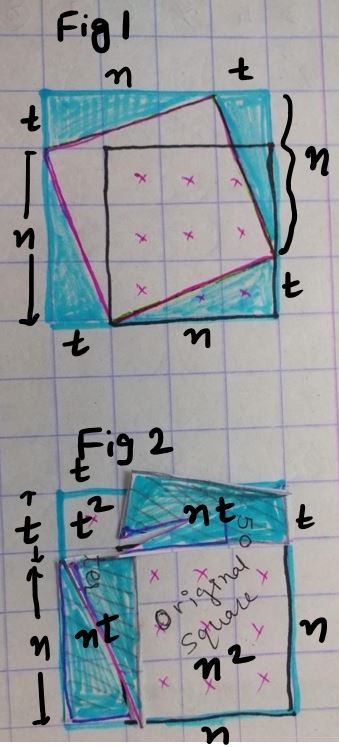 Fig 1
n t
t
n
n
t
t n
Fig 2
t
t t² nt t
n nt Original n
Square
n²
n